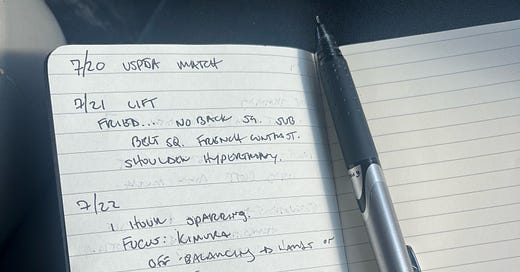 7/20 USPSA MATCH
7/21 LIFT
FRIED... NO BACK SQ. SUB
BELT SQ. FRENCH CONTRAST.
SHOULDER HYPERTROPHY.
7/22
1 HOUR SPARRING.
FOCUS: KIMURA
OFF BALANCING to HANDS or